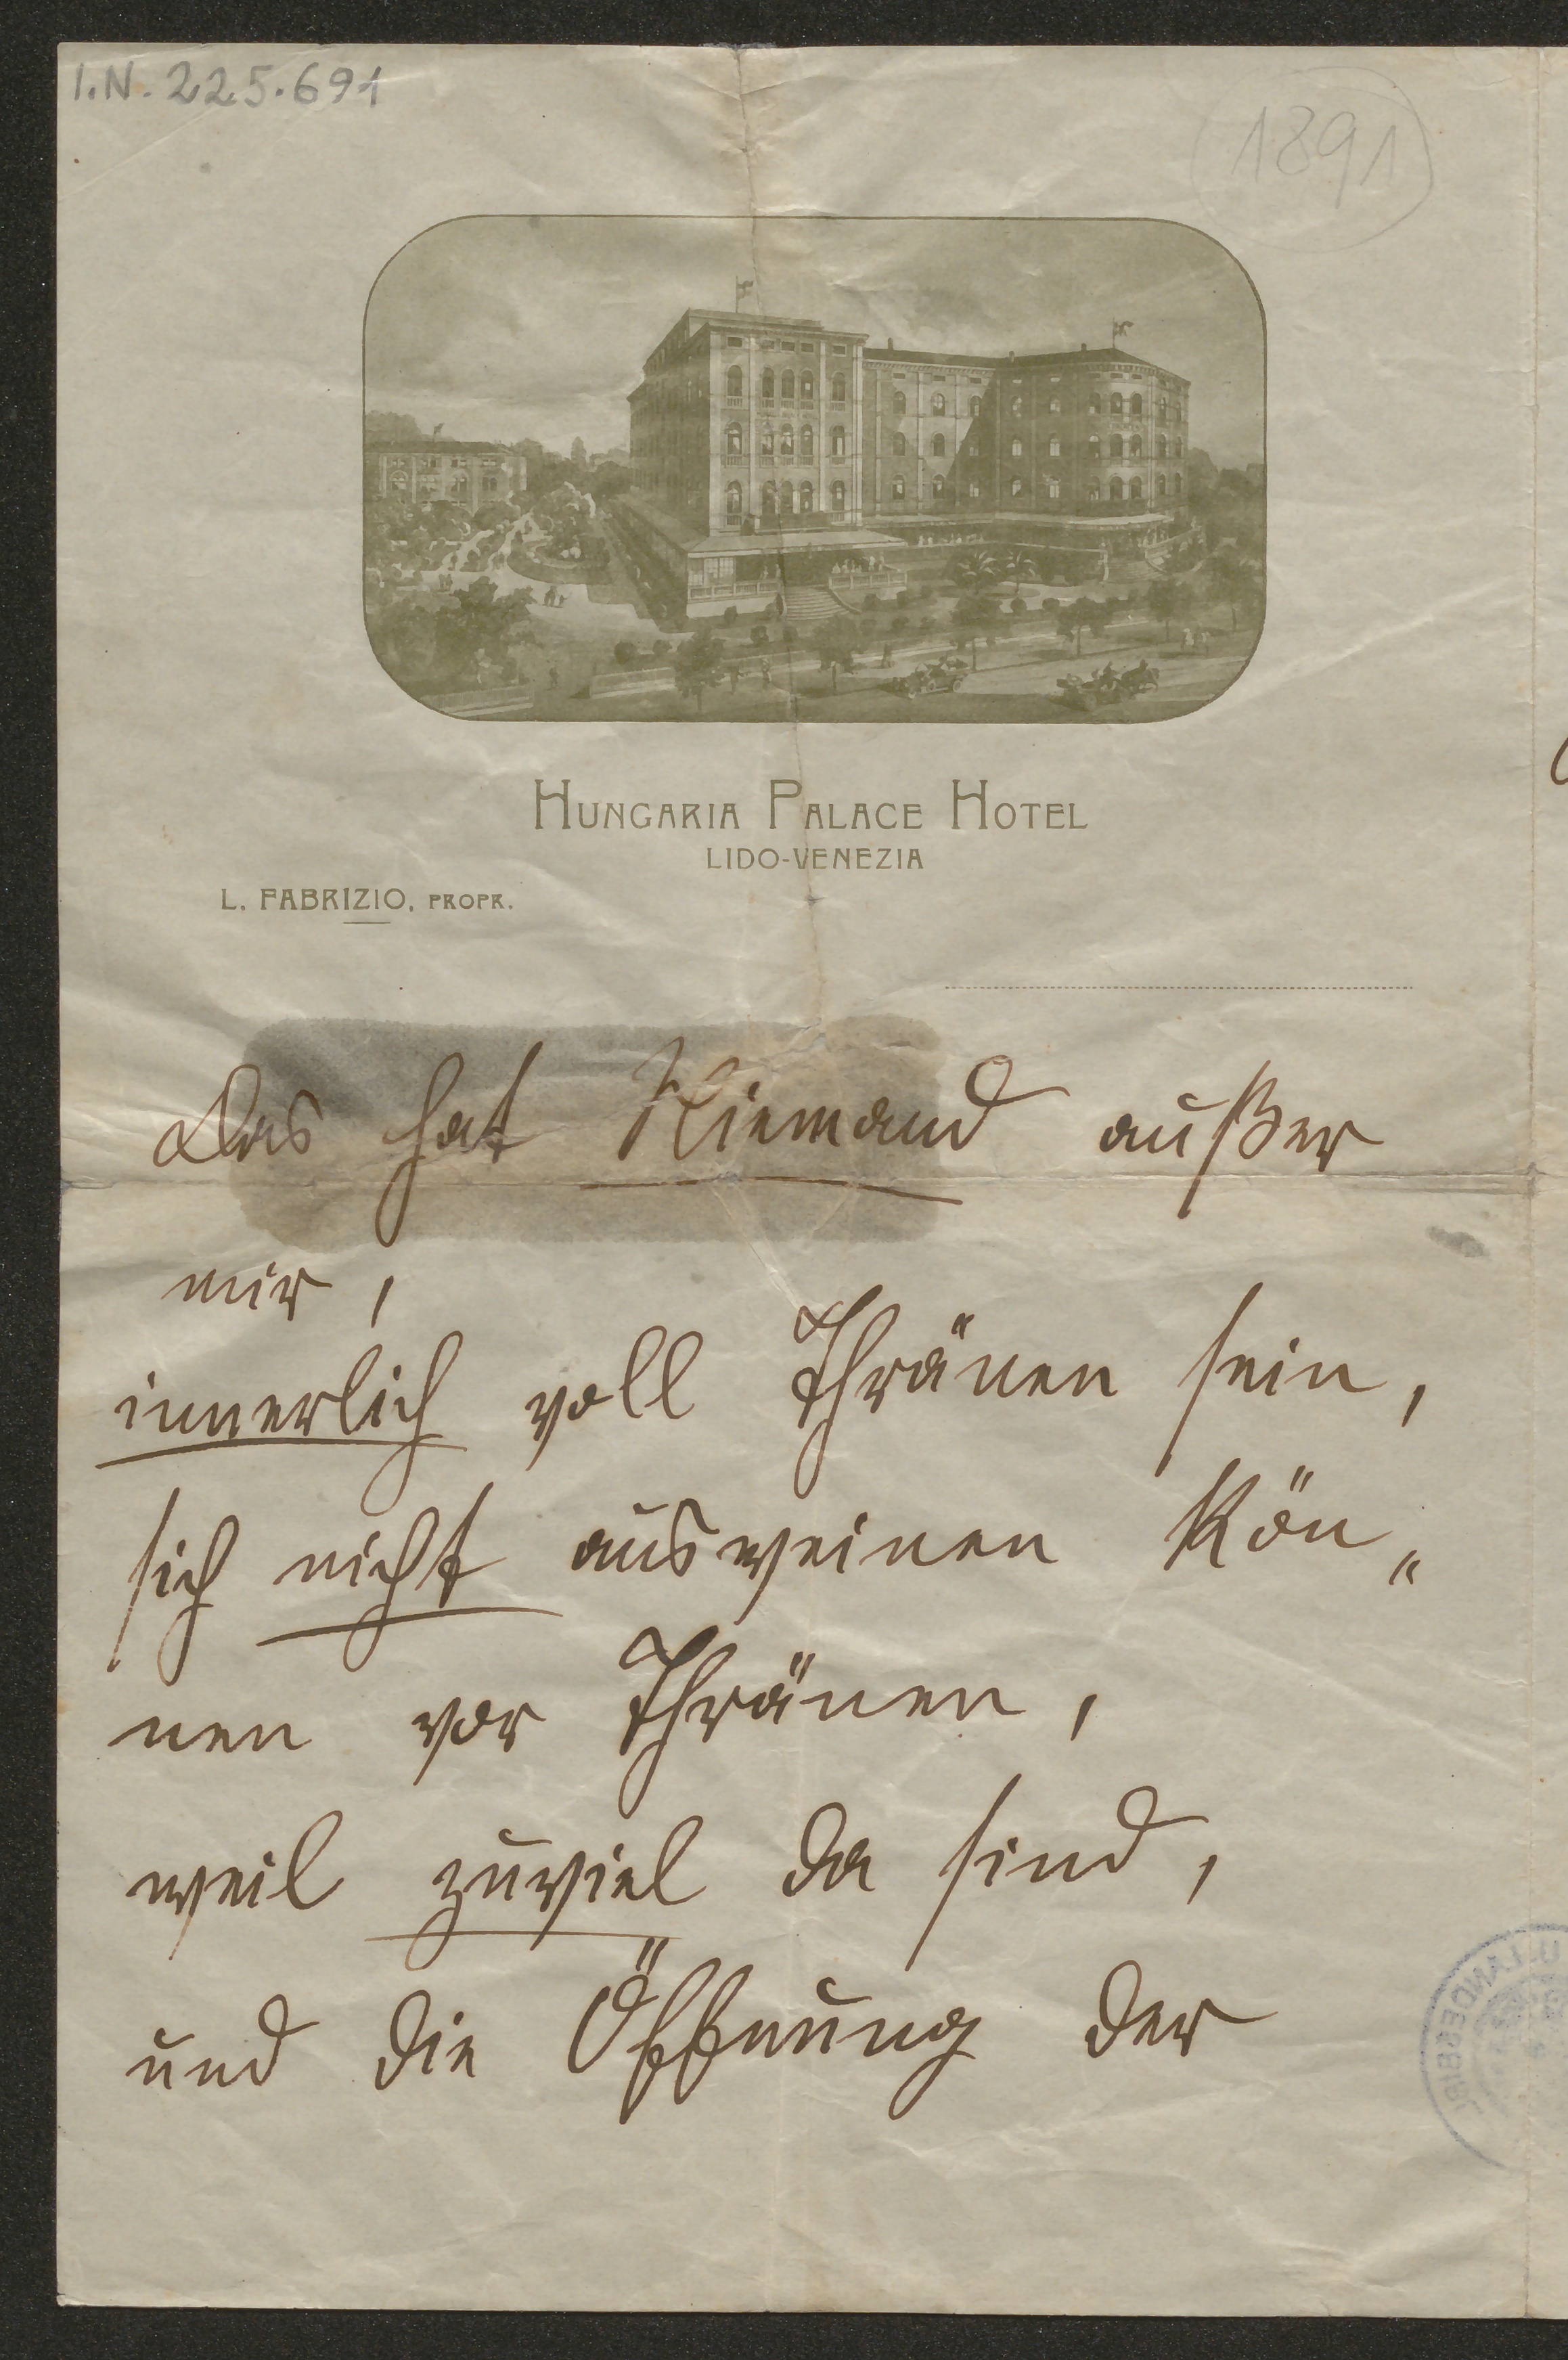 I.N. 225.691
1891
HUNGARIA PALACE HOTEL
LIDO-VENEZIA
L. FABRIZIO, PROPR.
Das hat Niemand außer
mir,
innerlich voll Thränen sein,
sich nicht ausweinen kön„
nen vor Thränen,
weil zuviel da sind,
und die Öffnung der